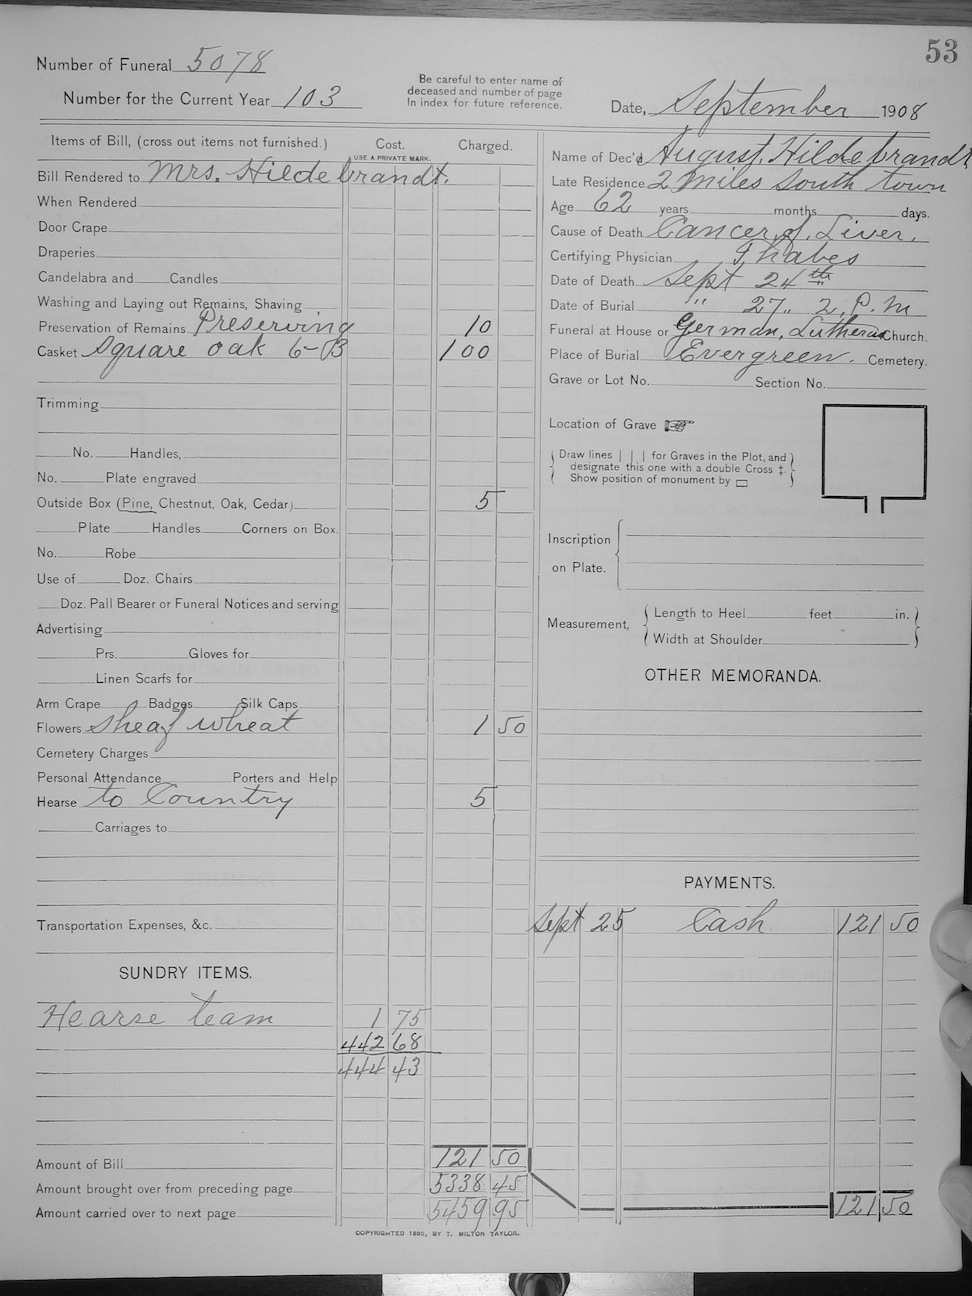 53
Number of Funeral 5078
Number for the Current Year 103
Be careful to enter name of
deceased and number of page
In index for future reference.
Date, September 1908
Items of Bill, (cross out items not furnished.) Cost. Charged.
USE A PRIVATE MARK.
Bill Rendered to Mrs. Hildebrandt.
When Rendered
Door Crape
Draperies
Candelabra and Candles
Washing and Laying out Remains, Shaving
Preservation of Remains Preserving 10
Casket Square oak 6-03 100
Trimming
No. Handles,
No. Plate engraved
Outside Box (Pine, Chestnut, Oak, Cedar) 5
Plate Handles Corners on Box.
No. Robe
Use of Doz. Chairs
Doz. Pall Bearer or Funeral Notices and serving
Advertising
Prs. Gloves for
Linen Scarfs for
Arm Crape Badges Silk Caps
Flowers Sheaf wheat 1 50
Cemetery Charges
Personal Attendance Porters and Help
Hearse to Country 5
Carriages to
Transportation Expenses, &c.
SUNDRY ITEMS.
Hearse team 1 75
442 68
444 43
Amount of Bill 121 50
Amount brought over from preceding page 5338 45
Amount carried over to next page 5459 95
COPYRIGHTED 1890, BY T. MILTON TAYLOR.
Name of Dec'd August Hildebrandt
Late Residence 2 miles South town
Age 62 years months days.
Cause of Death Cancer of Liver.
Certifying Physician Thabes
Date of Death Sept 24th
Date of Burial " 27 " 2 P.M
Funeral at House or German Lutheran Church.
Place of Burial Evergreen. Cemetery.
Grave or Lot No. Section No.
Location of Grave ☞
Draw lines | | | for Graves in the Plot, and
designate this one with a double Cross ‡.
Show position of monument by ▭
Inscription
on Plate.
Measurement, Length to Heel feet in.
Width at Shoulder
OTHER MEMORANDA.
PAYMENTS.
Sept 25 Cash 121 50
121 50